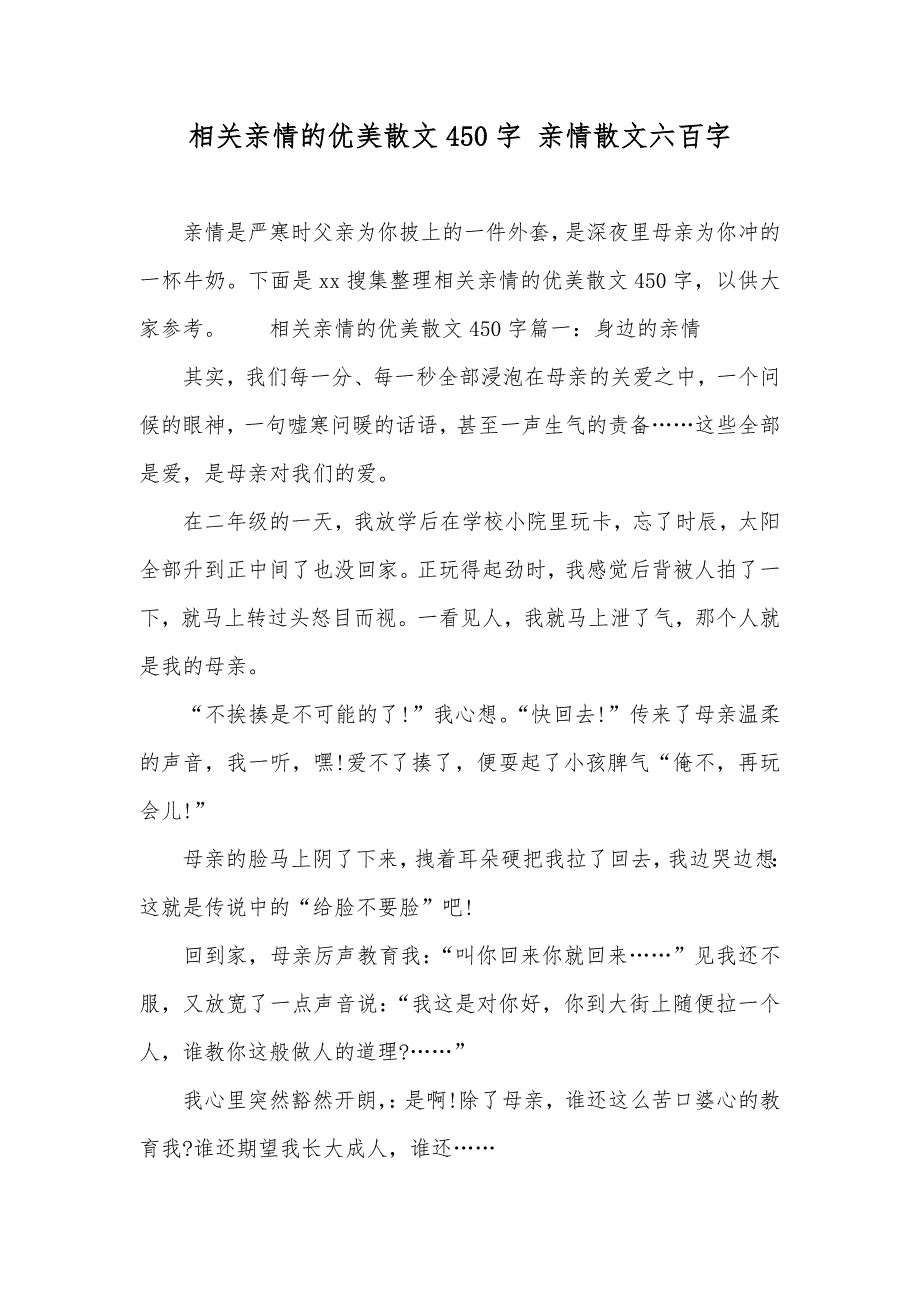 相关亲情的优美散文450字 亲情散文六百字
亲情是严寒时父亲为你披上的一件外套，是深夜里母亲为你冲的
一杯牛奶。下面是xx搜集整理相关亲情的优美散文450字，以供大
家参考。　　相关亲情的优美散文450字篇一：身边的亲情
其实，我们每一分、每一秒全部浸泡在母亲的关爱之中，一个问
候的眼神，一句嘘寒问暖的话语，甚至一声生气的责备……这些全部
是爱，是母亲对我们的爱。
在二年级的一天，我放学后在学校小院里玩卡，忘了时辰，太阳
全部升到正中间了也没回家。正玩得起劲时，我感觉后背被人拍了一
下，就马上转过头怒目而视。一看见人，我就马上泄了气，那个人就
是我的母亲。
“不挨揍是不可能的了!”我心想。“快回去!”传来了母亲温柔
的声音，我一听，嘿!爱不了揍了，便耍起了小孩脾气“俺不，再玩
会儿!”
母亲的脸马上阴了下来，拽着耳朵硬把我拉了回去，我边哭边想：
这就是传说中的“给脸不要脸”吧!
回到家，母亲厉声教育我：“叫你回来你就回来……”见我还不
服，又放宽了一点声音说：“我这是对你好，你到大街上随便拉一个
人，谁教你这般做人的道理?……”
我心里突然豁然开朗，：是啊!除了母亲，谁还这么苦口婆心的教
育我?谁还期望我长大成人，谁还……